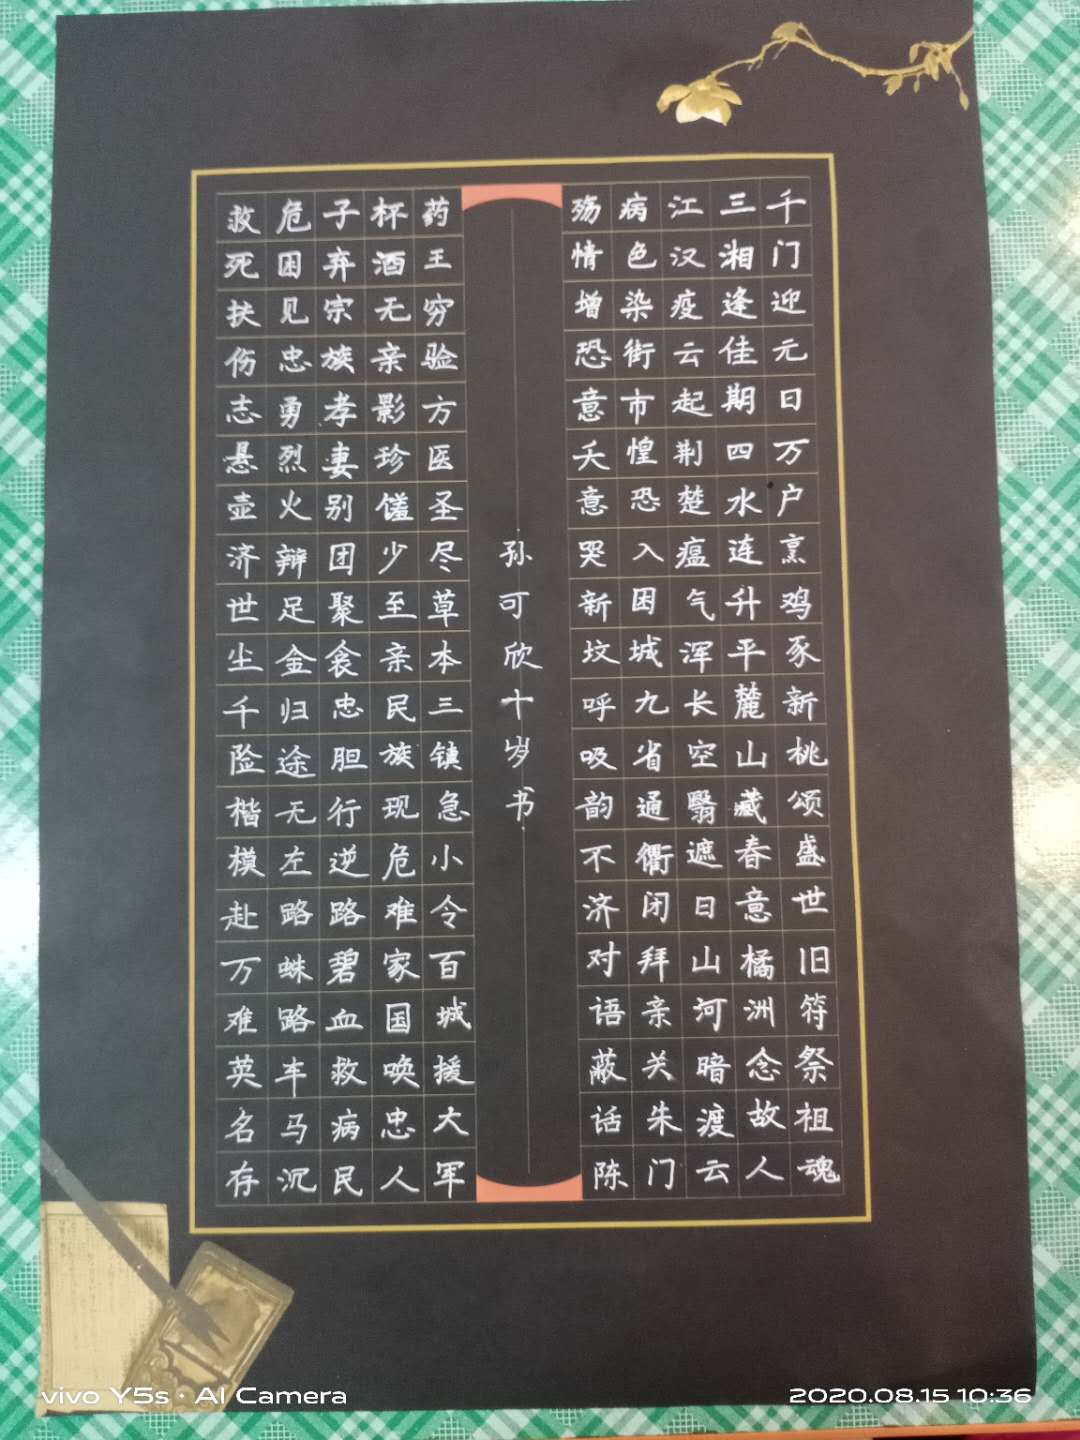 千门迎元日万户烹鸡豕新桃颂盛世旧符祭祖魂
三湘逢佳期四水连升平麓山藏春意橘洲念故人
江汉疫云起荆楚瘟气浑长空翳遮日山河暗渡云
病色染街市惶恐入困城九省通衢闭拜亲关朱门
殇情增恐意夭意哭新坟呼吸韵不济对语蔽话陈
孙可欣十岁书
药王穷验方医圣尽草本三镇急小令百城援大军
杯酒无亲影珍馐少至亲民族现危难家国唤忠人
子弃宗族孝妻别团聚衾忠胆行逆路碧血救病民
危困见忠勇烈火辩足金归途无左路蛛路车马沉
救死扶伤志悬壶济世尘千险楷模赴万难英名存
vivo Y5s · AI Camera
2020.08.15 10:36